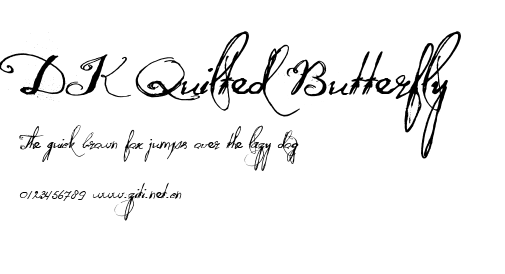 DK Quilted Butterfly
The quick brown fox jumps over the lazy dog
0123456789 www.ziti.net.cn